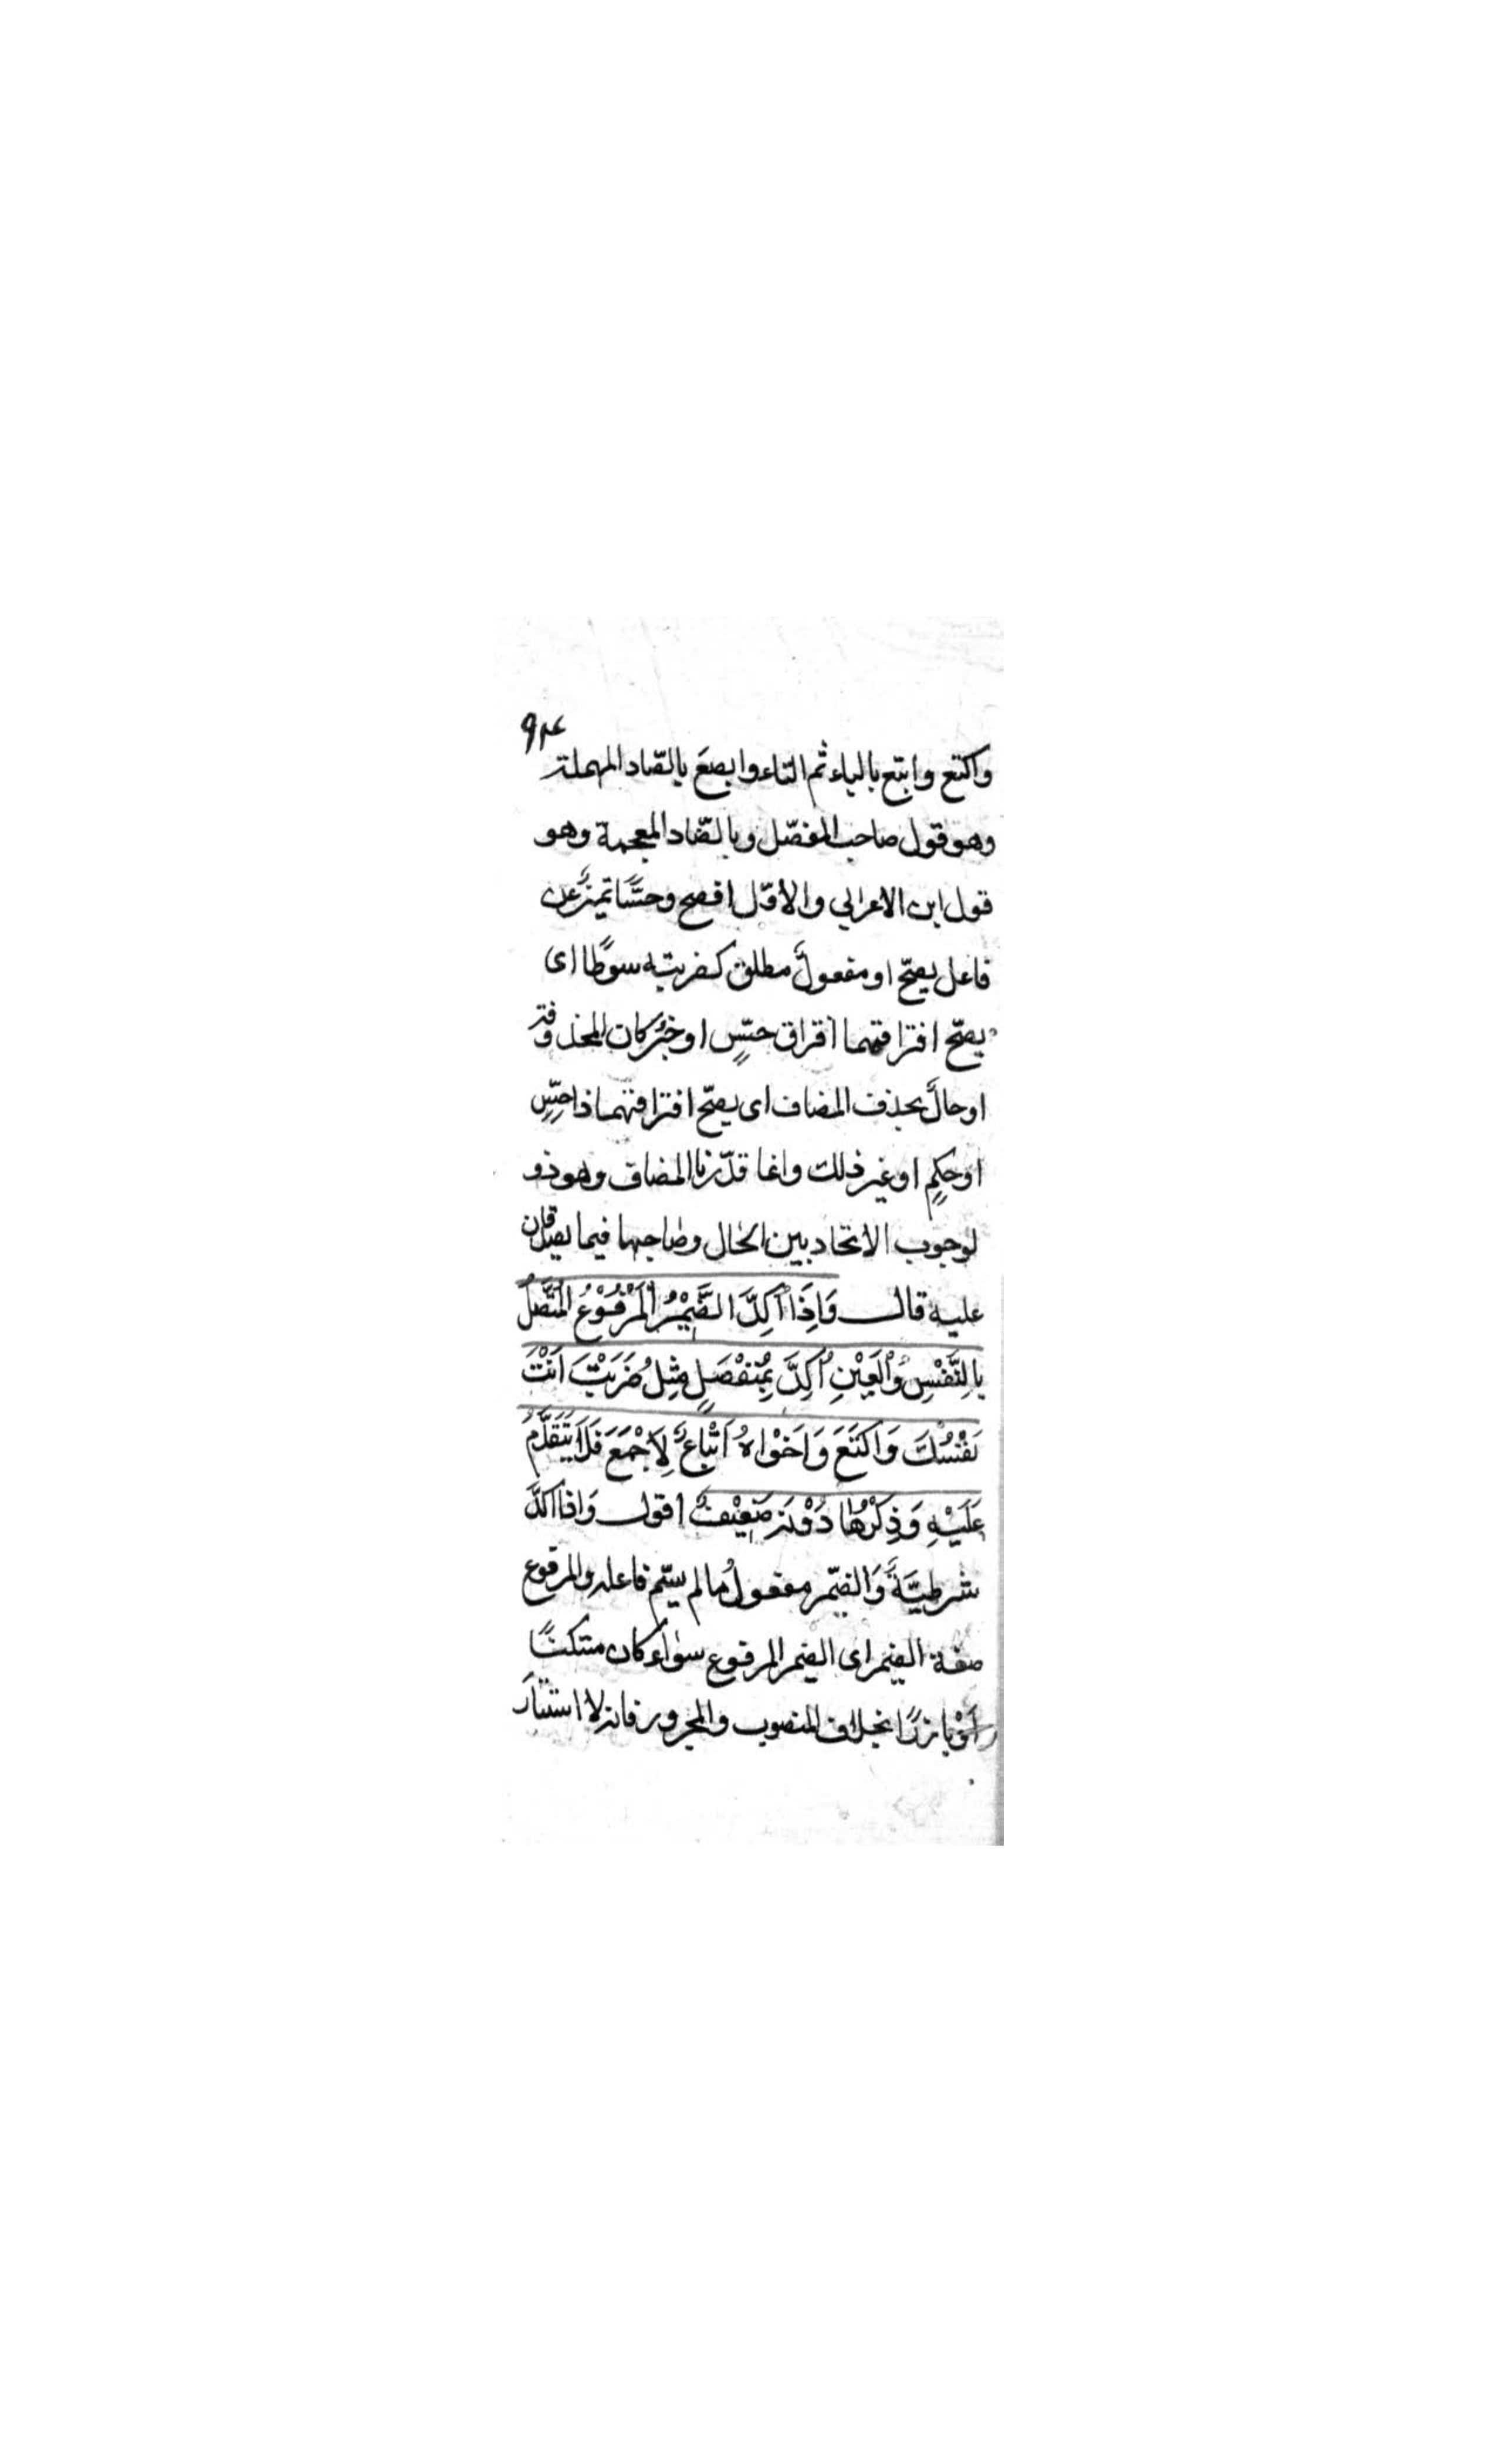 ٩٣
واكتع وابتع بالباء ثم التاء وابصعَ بالصّاد المهملة
وهو قول صاحب المفصّل وبالضّاد المعجمة وهو
قول ابن الاعرابي والأوّل افصح وحسًّا تميزٌ عن
فاعل يصحّ او مفعولٌ مطلق كضربته سوطًا اى
يصحّ افتراقهما افتراق حسٍّ او خبرُ كان المحذوفة
او حالٌ بحذف المضاف اى يصحّ افتراقهما ذا حِسٍّ
او حكمٍ او غير ذلك وانما قدّرنا المضاف وهو ذو
لوجوب الاتحاد بين الحال وصاحبها فيما يصدقان
عليه قال وَاِذَا اُكِدَّ الضَّمِيْرُ الْمَرْفُوْعُ الْمُتَّصِلُ
بِالنَّفْسِ وَالْعَيْنِ اُكِدَّ بِمُنْفَصِلٍ مِثْلُ ضَرَبْتَ اَنْتَ
نَفْسُكَ وَاَكْتَعَ وَاَخَوْاهُ اَتْبَاعٌ لِاَجْمَعَ فَلَا يَتَقَدَّمُ
عَلَيْهِ وَذِكْرُهَا دُوْنَهُ ضَعِيْفٌ اقول وَاذا اكدّ
شرطيّةٌ وَالضمير مفعولُ مالم يسّم فاعله والمرفوع
صفة الضمير اى الضمير المرفوع سواءٌ كان مستكنًّا
اَوْ بارزًا بخلاف المنصوب والمجرور فانه لا استتارَ